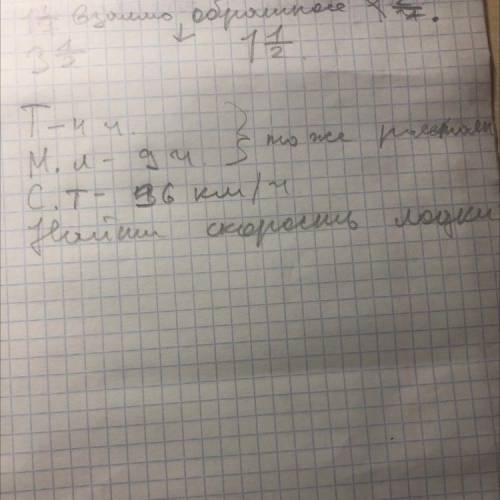 взаимо обратное
3 1/2 1 1/2
Т - 4 ч. }
М. л - 9 ч. } то же расстоян
С. т - 36 км/ч
Найти скорость лодки